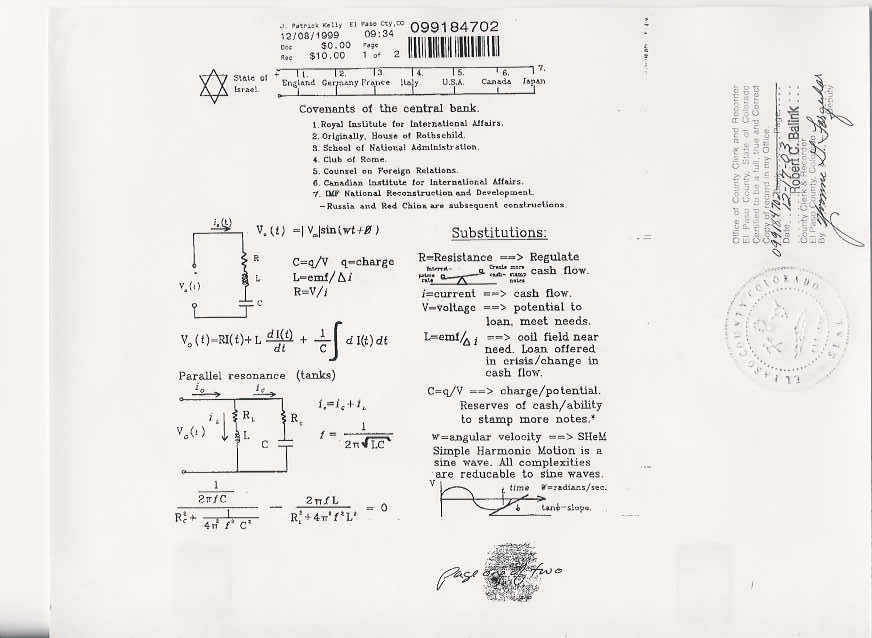 J. Patrick Kelly El Paso Cty,CO
099184702
12/08/1999 09:34
Doc $0.00 Page
Rec $10.00 1 of 2
State of Israel.
1. 2. 3. 4. 5. 6. 7.
England Germany France Italy U.S.A. Canada Japan
Covenants of the central bank.
1. Royal Institute for International Affairs.
2. Originally, House of Rothschild.
3. School of National Administration.
4. Club of Rome.
5. Counsel on Foreign Relations.
6. Canadian Institute for International Affairs.
7. IMF National Reconstruction and Development.
-Russia and Red China are subsequent constructions.
i₀(t)
V₀(t) =|Vₘ|sin(wt+Ø)
R
L
C
V₀(t)
C=q/V q=charge
L=emf/Δi
R=V/i
V₀(t)=RI(t)+L dI(t)/dt + 1/C ∫ d I(t) dt
Parallel resonance (tanks)
i₀ i_c
i_L R_L R_c
V₀(t) L C
i₀=i_c+i_L
f = 1/2π√LC
1/2πfC / R_c²+ 1/4π² f² C² − 2πfL / R_L²+4π²f²L² = 0
Substitutions:
R=Resistance ==> Regulate
cash flow.
Interest- points rate
Create more cash- stamp notes
i=current ==> cash flow.
V=voltage ==> potential to
loan, meet needs.
L=emf/Δi ==> coil field near
need. Loan offered
in crisis/change in
cash flow.
C=q/V ==> charge/potential.
Reserves of cash/ability
to stamp more notes.*
W=angular velocity ==> SHeM
Simple Harmonic Motion is a
sine wave. All complexities
are reducable to sine waves.
V
time W=radians/sec.
tanė-slope.
page one of two
Office of County Clerk and Recorder
El Paso County, State of Colorado
Certified to be a full, true and Correct
Copy of record in my Office.
099184702 Page
Date 12-17-03
Robert C. Balink
County Clerk & Recorder
El Paso County, Colorado
By
Deputy
EL PASO COUNTY COLORADO